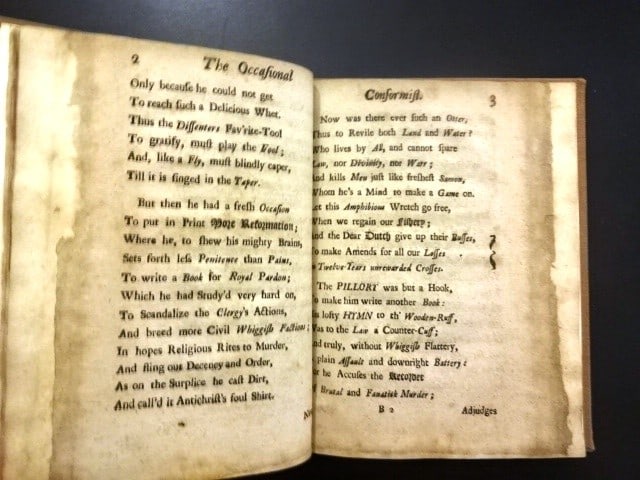 2
The Occaſional
Only becauſe he could not get
To reach ſuch a Delicious Whet.
Thus the Diſſenters Fav'rite-Tool
To gratify, muſt play the Fool;
And, like a Fly, muſt blindly caper,
Till it is ſinged in the Taper.
But then he had a freſh Occaſion
To put in Print More Reformation;
Where he, to ſhew his mighty Brains,
Sets forth leſs Penitence than Pains,
To write a Book for Royal Pardon;
Which he had Study'd very hard on,
To Scandalize the Clergy's Actions,
And breed more Civil Whiggiſh Factions;
In hopes Religious Rites to Murder,
And fling out Decency and Order,
As on the Surplice he caſt Dirt,
And call'd it Antichriſt's foul Shirt.
Conformiſt.
3
Now was there ever ſuch an Otter,
Thus to Revile both Land and Water?
Who lives by All, and cannot ſpare
Law, nor Divinity, nor War;
And kills Men juſt like freſheſt Samon,
Whom he's a Mind to make a Game on.
Let this Amphibious Wretch go free,
When we regain our Fiſhery;
And the Dear Dutch give up their Buſſes,
To make Amends for all our Loſſes
Twelve-Years unrewarded Croſſes.
The PILLORY was but a Hook,
To make him write another Book:
His lofty HYMN to th' Wooden-Ruff,
Was to the Law a Counter-Cuff;
And truly, without Whiggiſh Flattery,
plain Aſſault and downright Battery:
he Accuſes the Recorder
Brutal and Fanatick Murder;
B 2
Adjudges